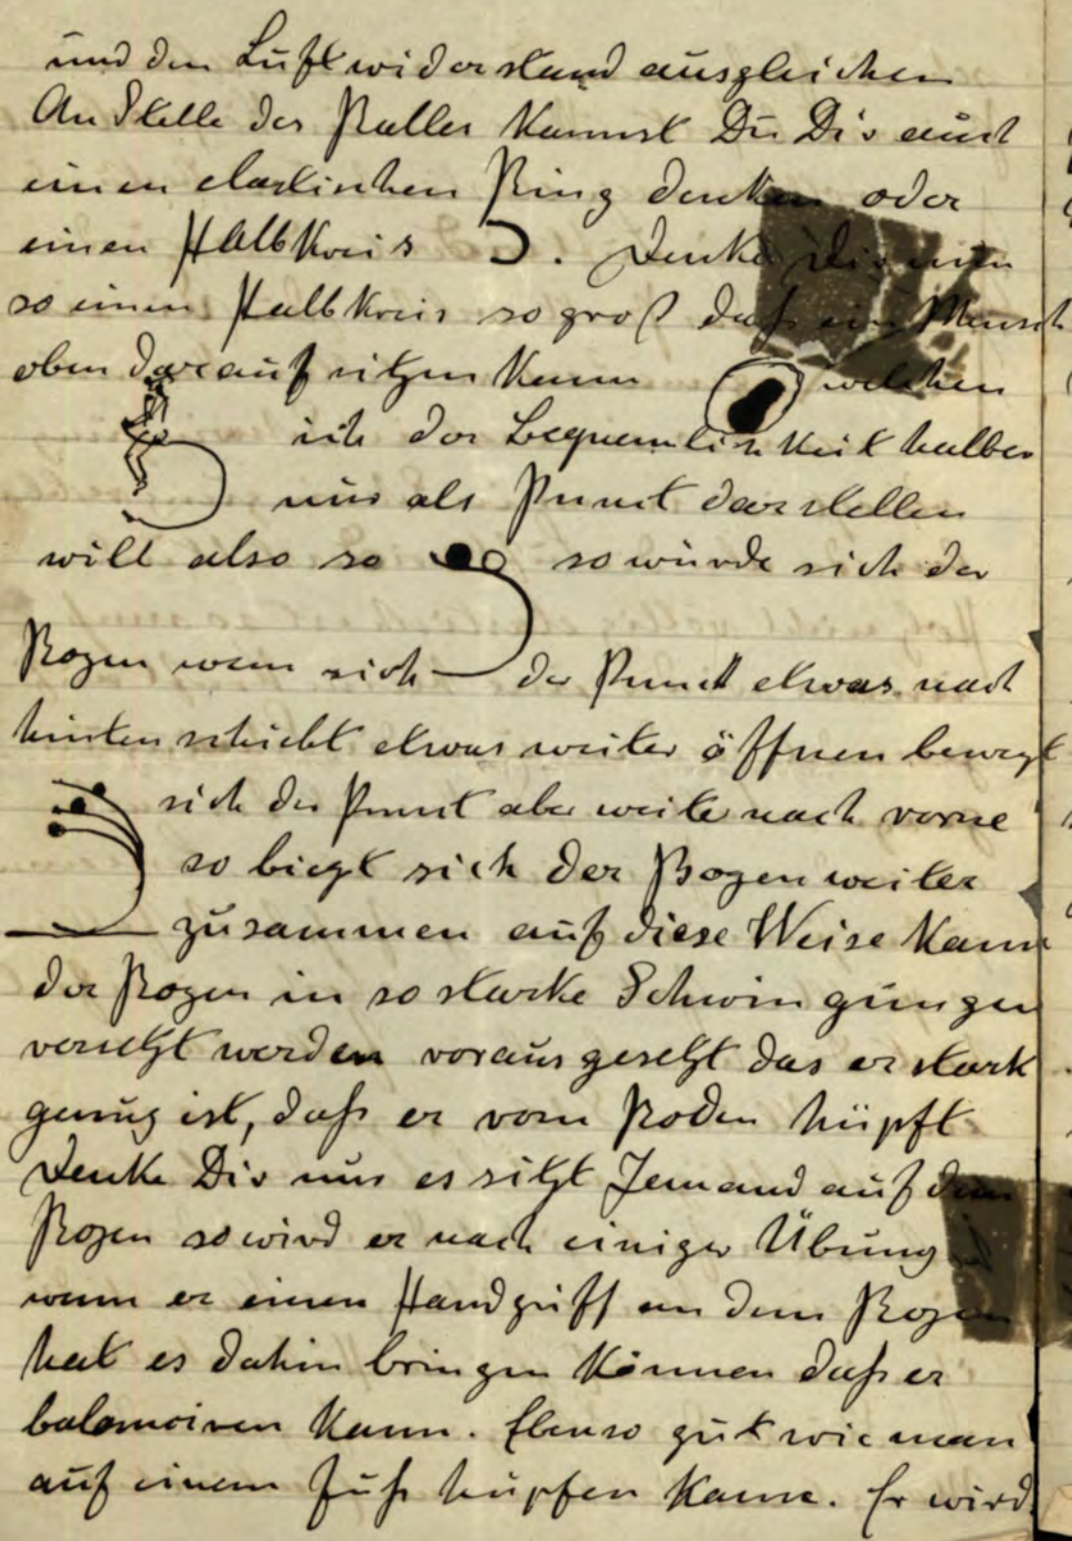 und den Luftwiderstand ausgleichen
An Stelle des Balles kannst Du Dir auch
einen elastischen Ring denken oder
einen Halbkreis . Denke Dir nun
so einen Halbkreis so groß daß ein Mensch
oben darauf sitzen kann welchen
ich der Bequemlichkeit halber
nur als Punct darstellen
will also so so würde sich der
Bogen wenn sich der Punct etwas nach
hinten schiebt etwas weiter öffnen bewegt
sich der Punct aber weiter nach vorne
so biegt sich der Bogen weiter
zusammen auf diese Weise kann
der Bogen in so starke Schwingungen
versetzt werden vorausgesetzt das er stark
genug ist, daß er vom Boden hüpft
Denke Dir nun es sitzt Jemand auf dem
Bogen so wird er nach einiger Übung
wenn er einen Handgriff an dem Bogen
hat es dahin bringen können daß er
balancieren kann. Ebenso gut wie man
auf einem Fuß hüpfen kann. Er wird